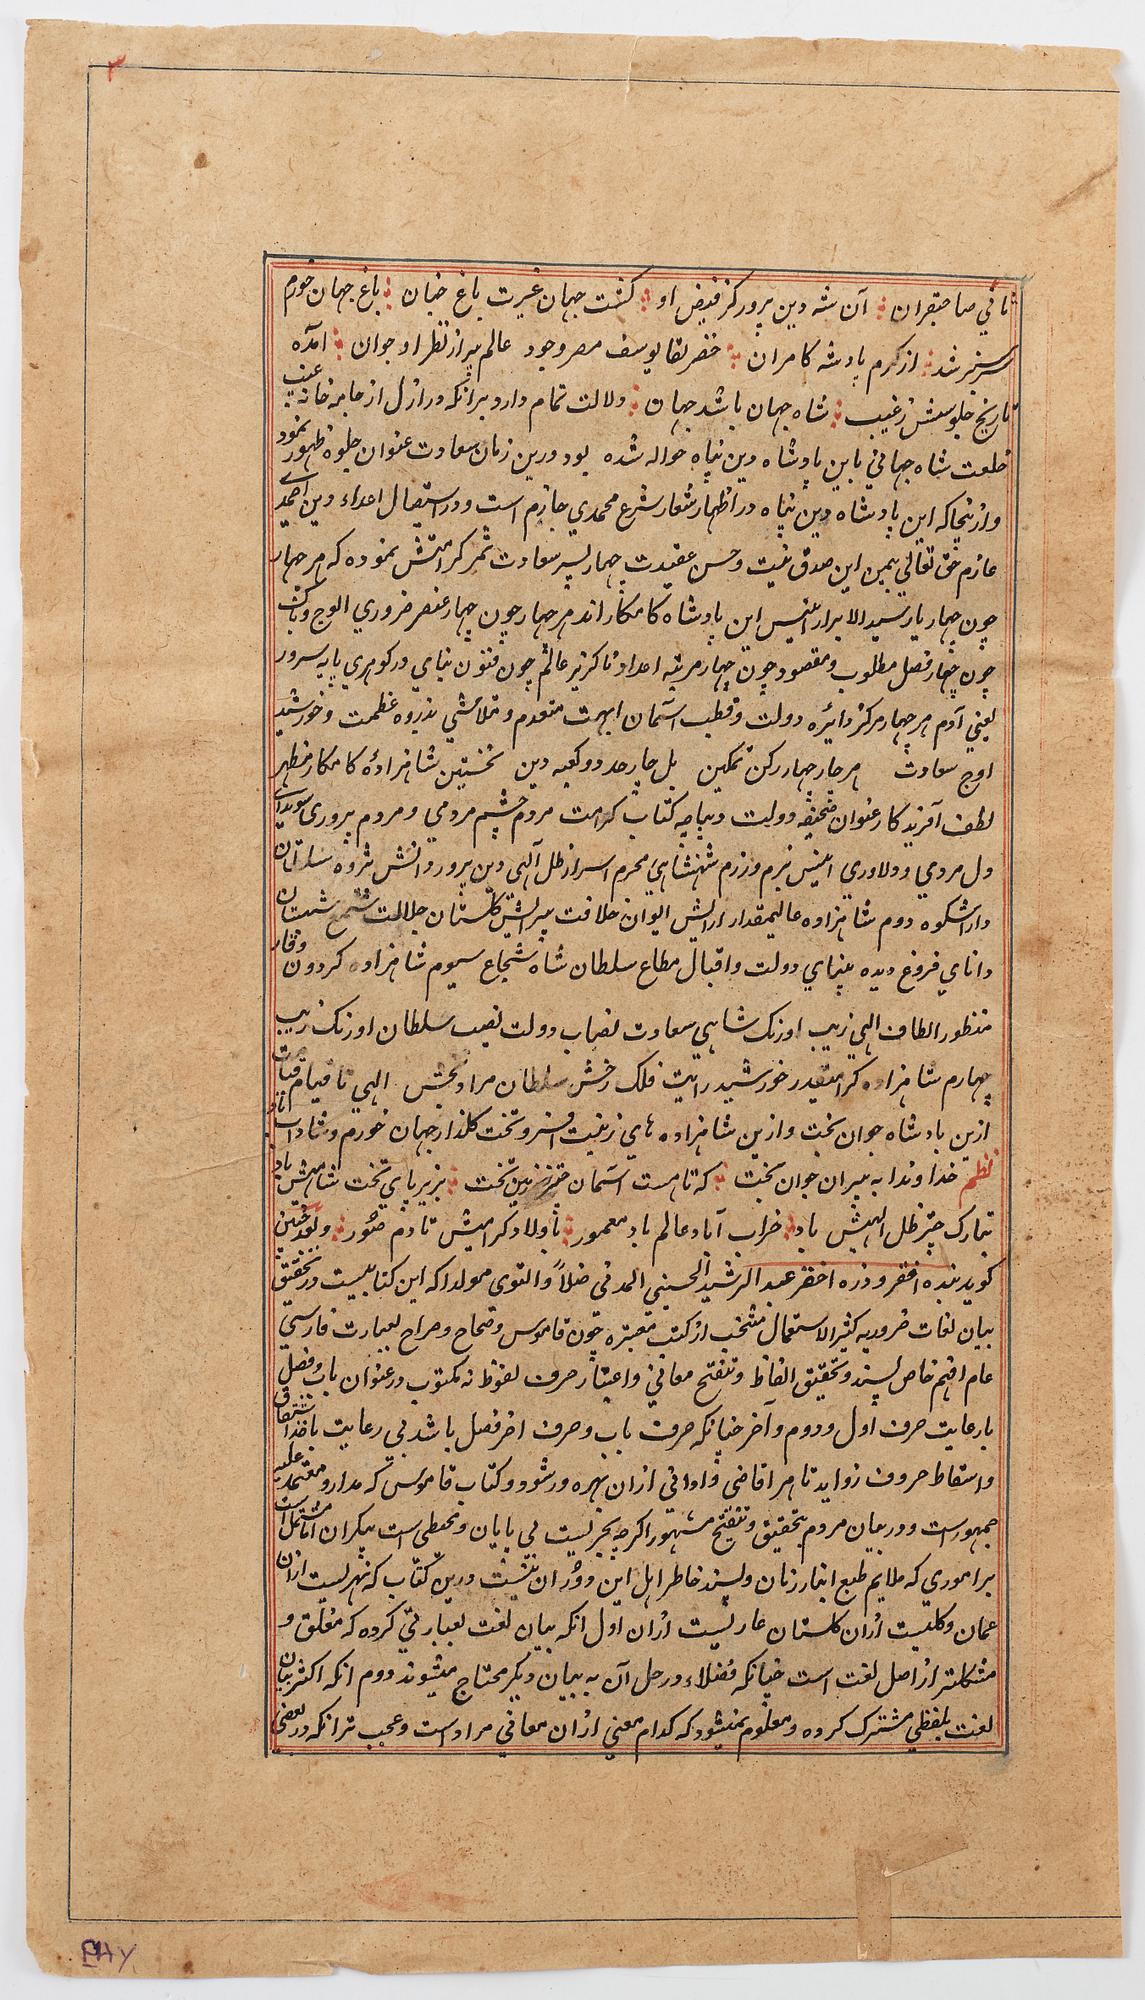 ٣
ثاني صاحبقران آن شه دين پرور كز فيض او كشت جهان غيرت باغ جنان باغ جهان خورم
سرسبز شد از كرم پادشه كامران خضر لقا يوسف مصر وجود عالم پير از نظر او جوان امده
تاريخ جلوسش زغيب شاه جهان باشد جهان دلالت تمام دارد برانكه در ازل از جامه خانه غيب
خلعت شاه جهاني باين پادشاه دين پناه حواله شده بود درين زمان سعادت عنوان جلوه ظهور نمود
و ازينجا كه اين پادشاه دين پناه در اظهار شعار شرع محمدي جازم است و در استيصال اعداء دين احمدي
عازم حق تعالي بيمن اين صدق نيت و حسن عقيدت چهار پسر سعادت ثمر كرامتش نموده كه هر چهار
چون چهار يار سيد الابرار انيس اين پادشاه كامكار اند هر چهار چون چهار عنصر ضروري الوجود
چون چهار فصل مطلوب و مقصود چون چهار مرتبه اعداد ناكزير عالم چون فنون بناي در كوهري پايه سرور
يعني آدم هر چهار مركز دائره دولت و قطب آسمان ابهت متقدم و متلاشي بذروه عظمت و خورشيد
اوج سعادت هر چار چهار ركن تمكين بل چار حدود كعبه دين نخستين شاهزاده كامكار مظهر
لطف آفريدكار عنوان صحيفه دولت ديباچه كتاب كرامت مردم چشم مردمي و مردم پروري سويداي
دل مردي و دلاوري انيس بزم و رزم شهنشاهي محرم اسرار ظل آلهي دين پرور دانش پژوه سلطان
داراشكوه دوم شاهزاده عاليمقدار ارايش ايوان خلافت پيرايش كلستان جلالت شمع شبستان
داناي فروغ ديده بيناي دولت و اقبال مطاع سلطان شاه شجاع سيوم شاهزاده كردون وقار
منظور الطاف الهي زيب اورنك شاهي سعادت نصاب دولت نصيب سلطان اورنك زيب
چهارم شاهزاده كراميقدر خورشيد رايت فلك رخش سلطان مراد بخش الهي تا قيام قيامت
ازين پادشاه جوان بخت و ازين شاهزاده هاي زينت افسر و تخت كلذار جهان خورم و شاداب باد
نظم خداوندا به پيران جوان بخت كه تا هست آسمان چتر زمين تخت بزير پاي تخت شاهيش باد
تبارك چتر ظل الهيش باد خراب آباد عالم باد معمور باولاد كراميش تا دم صور و بعد چنين
كويد بنده افقر و ذره احقر عبد الرشيد الحسيني المدني اصلاً والتوي مولدا كه اين كتابيست در تحقيق
بيان لغات ضروريه كثير الاستعمال منتخب از كتب معتبره چون قاموس و صحاح و صراح بعبارت فارسي
عام افهم خاص پسند و تحقيق الفاظ و تنقيح معاني و اعتبار حرف لفوظ نه مكتوب در عنوان باب و فصل
با رعايت حرف اول و دوم و آخر چنانكه حرف باب و حرف اخر فصل باشد بي رعايت ماخذ اشتقاق
و اسقاط حروف زوايد تا هر اقاصي و اداني ازان بهره ور شود و كتاب قاموس كه مدار و معتمد عليه
جمهور است و در بيان مردم بتحقيق و تنقيح مشهور اكرچه بحريست بي پايان و محيطي است بيكران اما مشتمل است
بر اموري كه ملايم طبع ابناء زمان و پسند خاطر اهل اين دوران نيست و درين كتاب كه نهريست ازان
عمان و كليست ازان كلستان عاريست ازان اول انكه بيان لغت بعبارتي كرده كه مغلق و
مشكلتر از اصل لغت است چنانكه فضلاء در حل آن به بيان ديكر محتاج ميشوند دوم انكه اكثر بيان
لغت بلفظي مشترك كرده و معلوم نميشود كه كدام معني ازان معاني مراد است و عجب تر انكه در بعضي